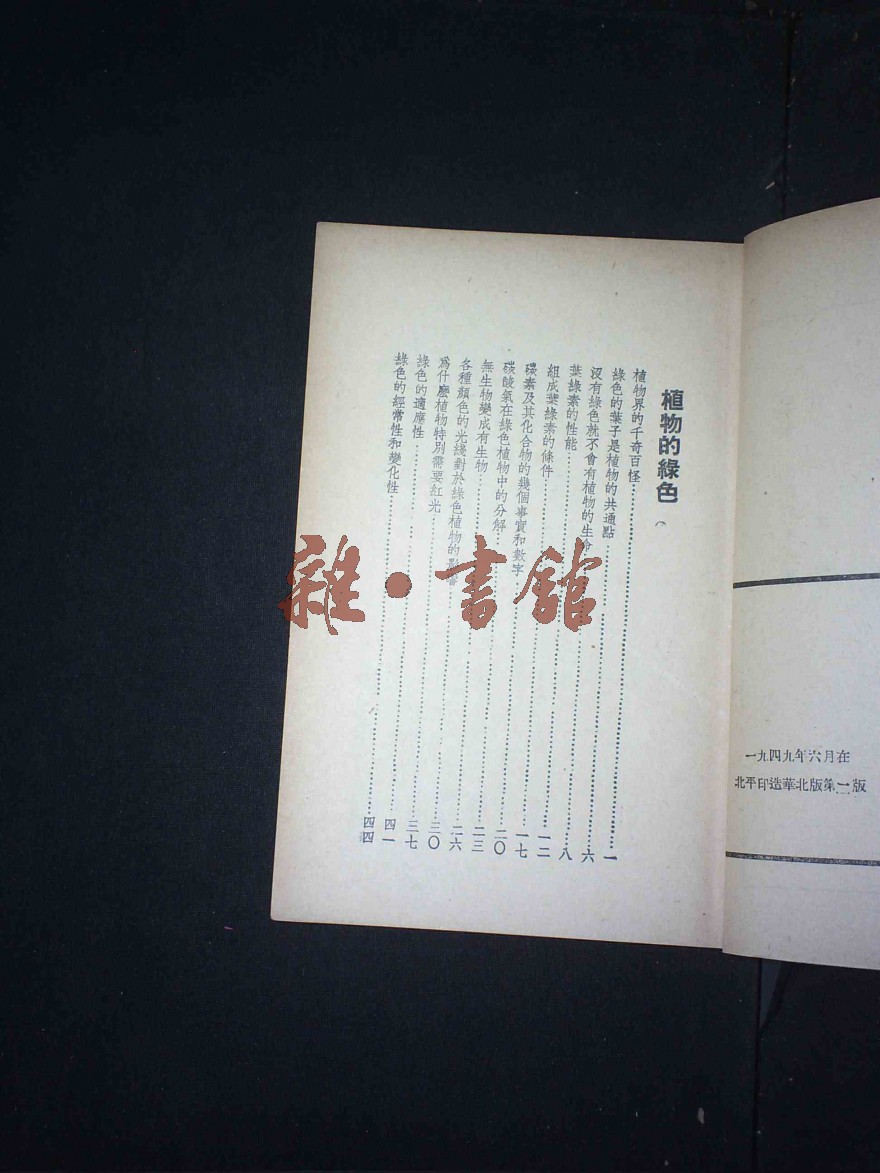 一九四九年六月在
北平印造華北版第二版
植物的綠色
植物界的千奇百怪……一
綠色的葉子是植物的共通點……六
沒有綠色就不會有植物的生命……八
葉綠素的性能……一二
組成葉綠素的條件……一七
碳素及其化合物的幾個事實和數字……二〇
碳酸氣在綠色植物中的分解……二三
無生物變成有生物……二六
各種顏色的光綫對於綠色植物的影響……三〇
爲什麽植物特別需要紅光……三七
綠色的適應性……四一
綠色的經常性和變化性……四四
雜·書館